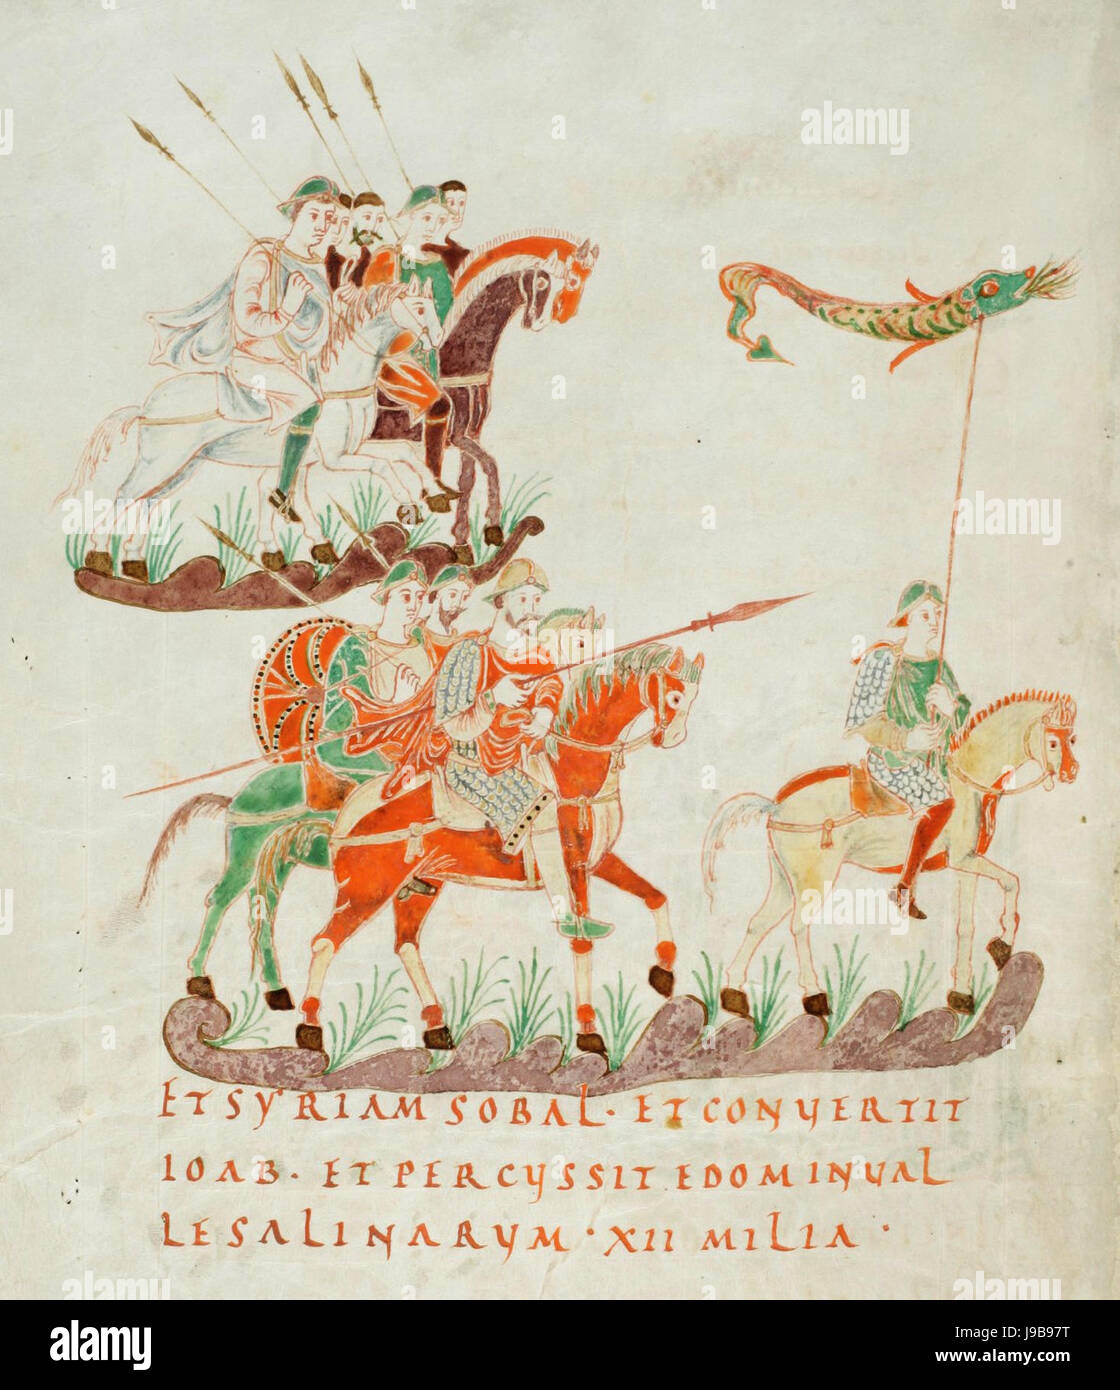 ET SYRIAM SOBAL · ET CONVERTIT
IOAB · ET PERCUSSIT EDOM IN VAL
LE SALINARUM · XII MILIA ·
alamy
Image ID: J9B97T
www.alamy.com